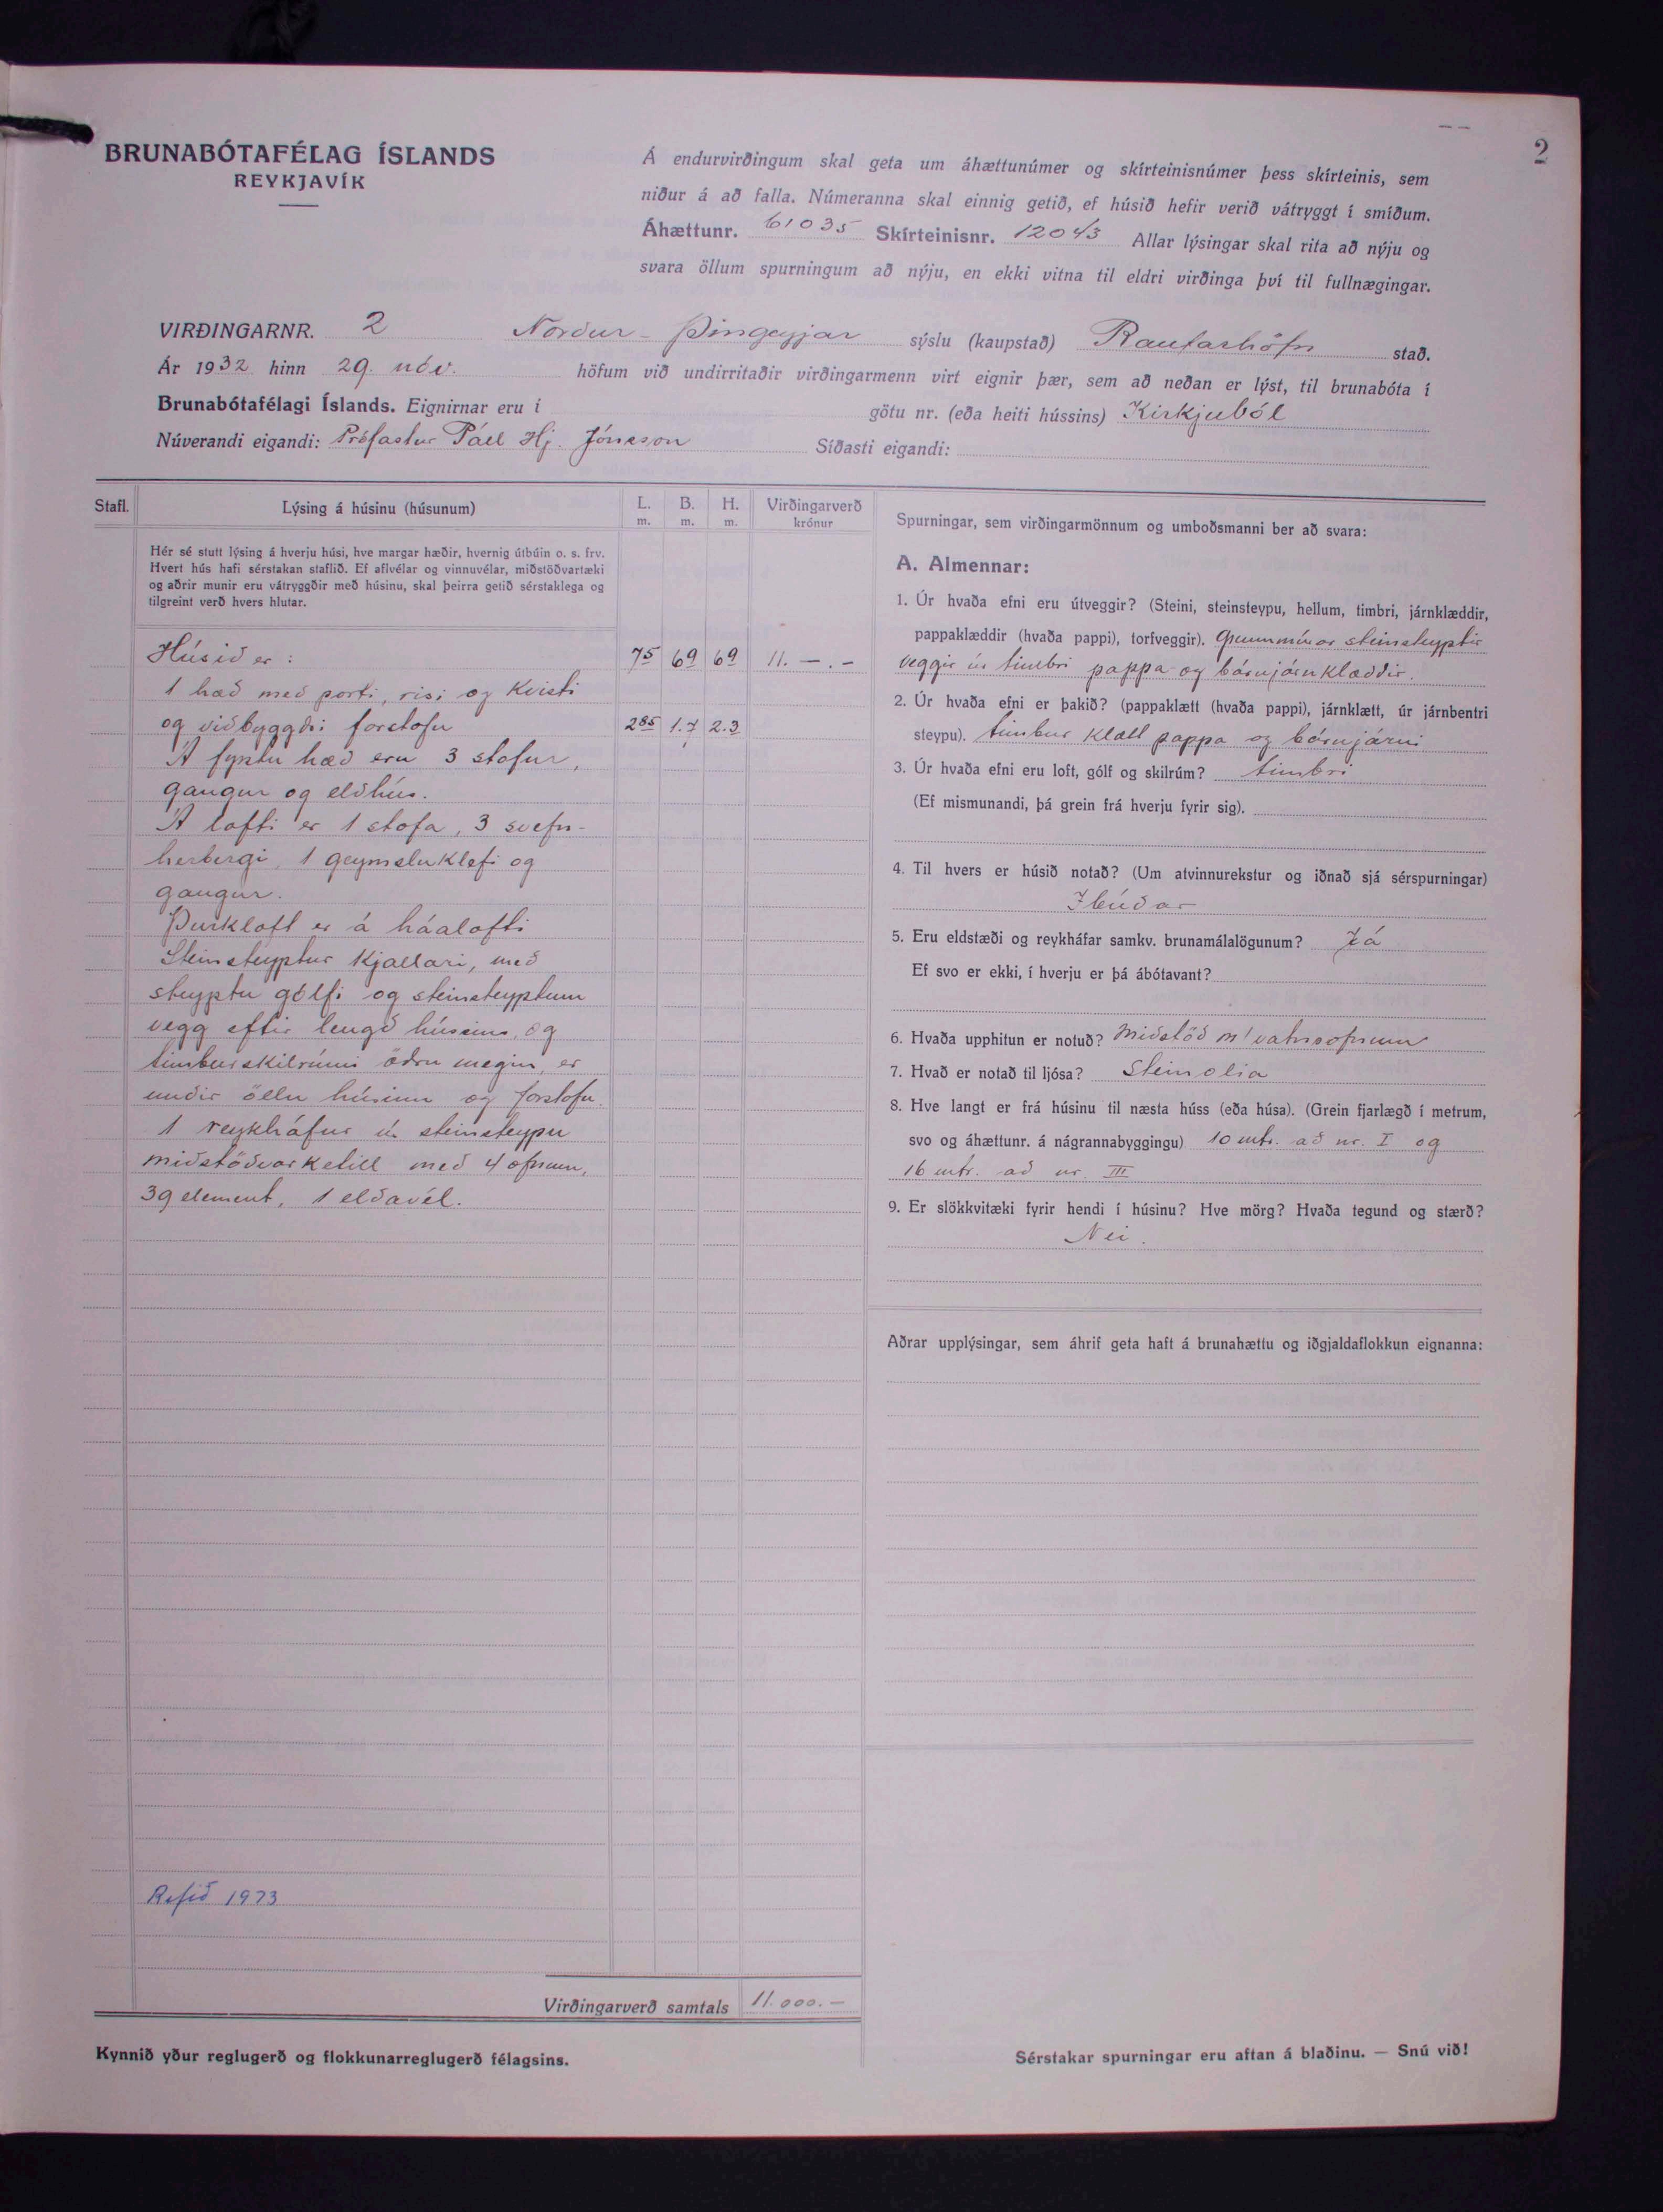 2
BRUNABÓTAFÉLAG ÍSLANDS
REYKJAVÍK
Á endurvirðingum skal geta um áhættunúmer og skírteinisnúmer þess skírteinis, sem
niður á að falla. Númeranna skal einnig getið, ef húsið hefir verið vátryggt í smíðum.
Áhættunr. 61035 Skírteinisnr. 12043 Allar lýsingar skal rita að nýju og
svara öllum spurningum að nýju, en ekki vitna til eldri virðinga því til fullnægingar.
VIRÐINGARNR. 2 Norður-Þingeyjar sýslu (kaupstað) Raufarhöfn stað.
Ár 1932 hinn 29. nóv. höfum við undirritaðir virðingarmenn virt eignir þær, sem að neðan er lýst, til brunabóta í
Brunabótafélagi Íslands. Eignirnar eru í götu nr. (eða heiti hússins) Kirkjuból
Núverandi eigandi: Prófastur Páll Hj. Jónsson Síðasti eigandi:
Stafl. Lýsing á húsinu (húsunum) L. m. B. m. H. m. Virðingarverð krónur
Hér sé stutt lýsing á hverju húsi, hve margar hæðir, hvernig útbúin o. s. frv.
Hvert hús hafi sérstakan staflið. Ef aflvélar og vinnuvélar, miðstöðvartæki
og aðrir munir eru vátryggðir með húsinu, skal þeirra getið sérstaklega og
tilgreint verð hvers hlutar.
Húsið er: 75 69 69 11. –.–
1 hæð með porti, risi og Kvisti
og viðbyggðri forstofu 285 1.7 2.3
Á fyrstu hæð eru 3 stofur,
gangur og eldhús.
Á lofti er 1 stofa, 3 svefn-
herbergi, 1 geymsluklefi og
gangur.
Þurkloft er á háalofti
Steinsteyptur Kjallari, með
steyptu gólfi og steinsteyptum
vegg eftir lengd hússins, og
timburskilrúmi öðru megin, er
undir öllu húsinu og forstofu.
1 reykháfur úr steinsteypu
miðstöðvarketill með 4 ofnum,
39 element, 1 eldavél.
Rifið 1973
Virðingarverð samtals 11.000.–
Kynnið yður reglugerð og flokkunarreglugerð félagsins.
Spurningar, sem virðingarmönnum og umboðsmanni ber að svara:
A. Almennar:
1. Úr hvaða efni eru útveggir? (Steini, steinsteypu, hellum, timbri, járnklæddir,
pappaklæddir (hvaða pappi), torfveggir). Grunnmúrar steinsteyptir
veggir úr timbri pappa og bárujárnklæddir.
2. Úr hvaða efni er þakið? (pappaklætt (hvaða pappi), járnklætt, úr járnbentri
steypu). timbur klætt pappa og bárujárni
3. Úr hvaða efni eru loft, gólf og skilrúm? timbri
(Ef mismunandi, þá grein frá hverju fyrir sig).
4. Til hvers er húsið notað? (Um atvinnurekstur og iðnað sjá sérspurningar)
Íbúðar
5. Eru eldstæði og reykháfar samkv. brunamálalögunum? Já
Ef svo er ekki, í hverju er þá ábótavant?
6. Hvaða upphitun er notuð? Miðstöð m/vatnsofnum
7. Hvað er notað til ljósa? Steinolía
8. Hve langt er frá húsinu til næsta húss (eða húsa). (Grein fjarlægð í metrum,
svo og áhættunr. á nágrannabyggingu) 10 mtr. að nr. I og
16 mtr. að nr. III
9. Er slökkvitæki fyrir hendi í húsinu? Hve mörg? Hvaða tegund og stærð?
Nei.
Aðrar upplýsingar, sem áhrif geta haft á brunahættu og iðgjaldaflokkun eignanna:
Sérstakar spurningar eru aftan á blaðinu. — Snú við!